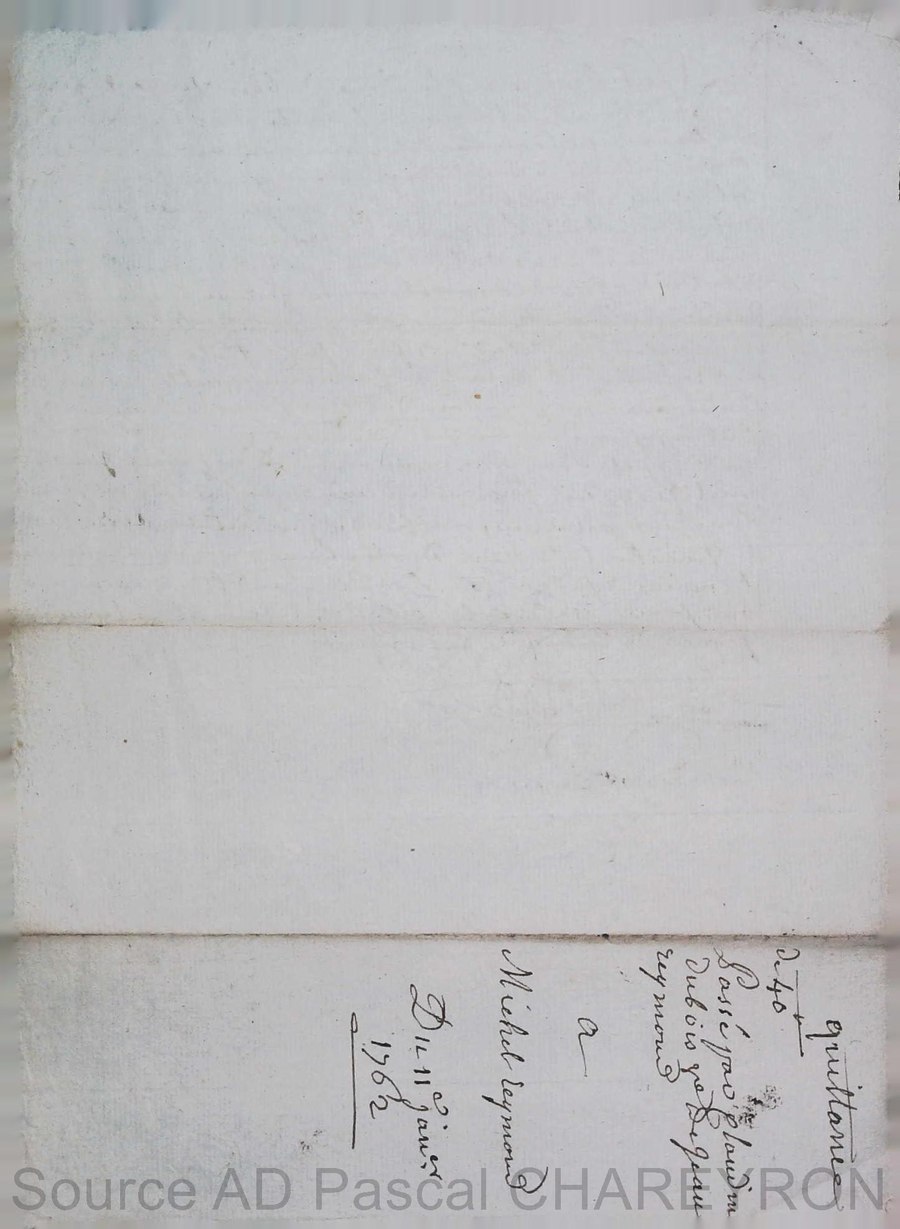 quittance
de 40 ₶
Passé par Claudin
Dubois ve De jean
reymond
a
Michel reymond
Du 11e janer
1762
Source AD Pascal CHAREYRON